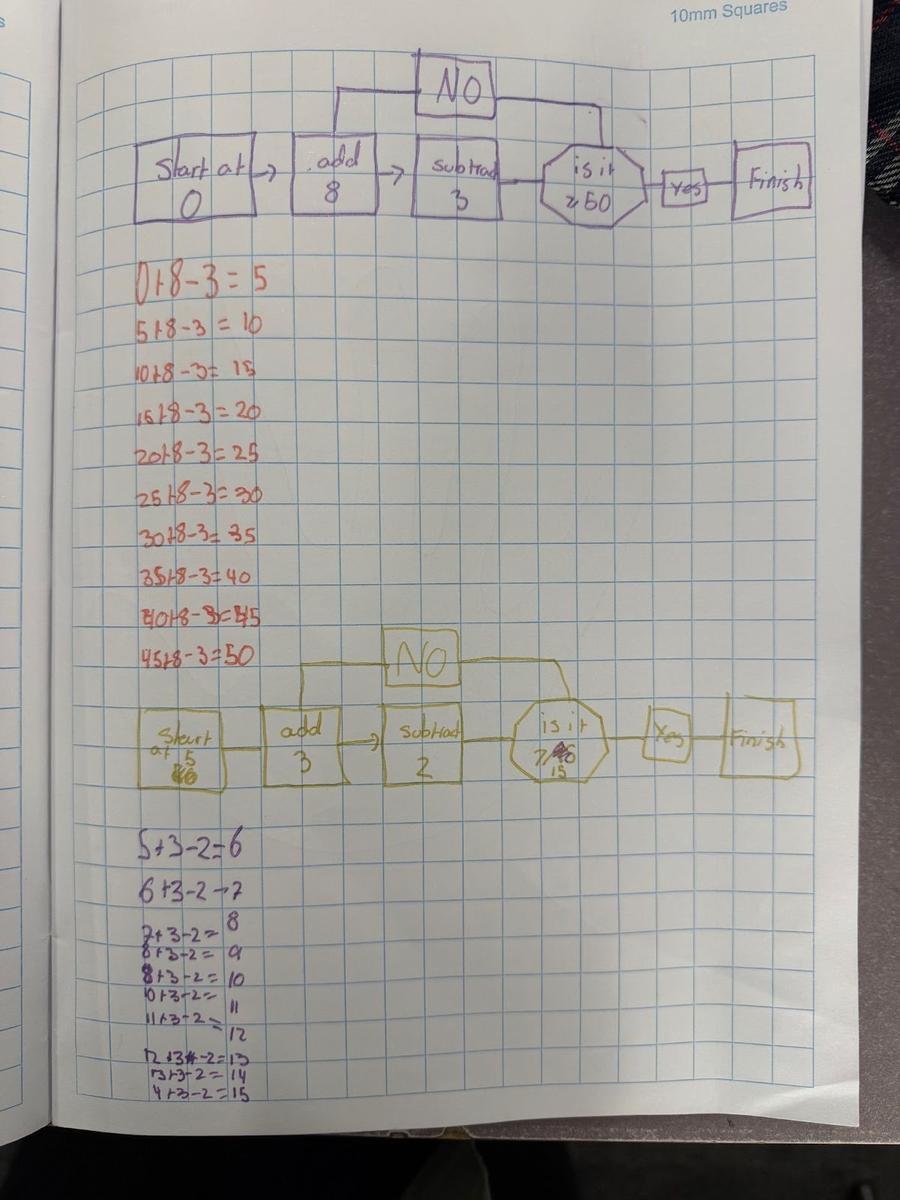 10mm Squares
NO
Start at 0 → add 8 → subtract 3 is it ≥50 Yes Finish
0+8-3=5
5+8-3=10
10+8-3=15
15+8-3=20
20+8-3=25
25+8-3=30
30+8-3=35
35+8-3=40
40+8-3=45
45+8-3=50
NO
Start at 5 add 3 → subtract 2 is it ≥ 15 Yes Finish
5+3-2=6
6+3-2→7
7+3-2=8
8+3-2=9
+3-2=10
10+3-2=11
11+3-2=12
12+3-2=13
13+3-2=14
4+3-2=15